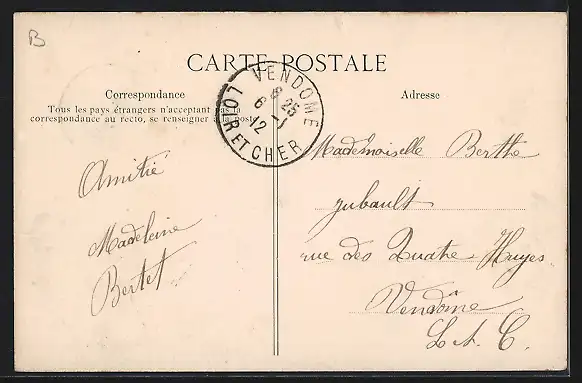 B
CARTE POSTALE
Correspondance
Tous les pays étrangers n'acceptant pas la
correspondance au recto, se renseigner à la poste
Amitié
Madeleine
Bertet
VENDOME
8 25
6 - 1
12
LOIR ET CHER
Adresse
Mademoiselle Berthe
Jubault
rue des Quatre Huyes
Vendôme
L. & C.